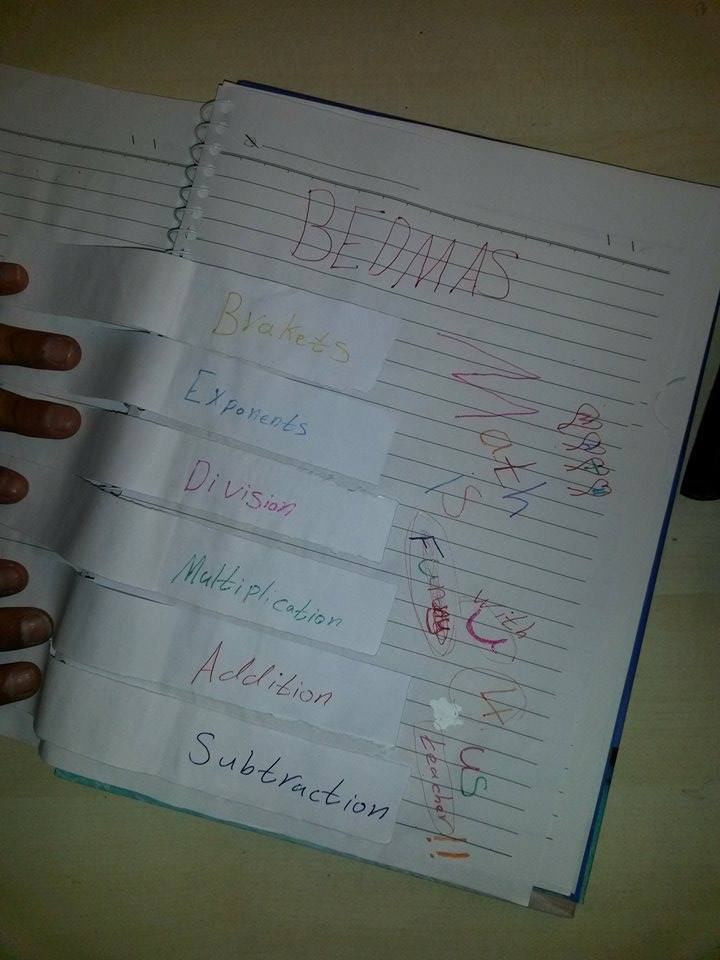 BEDMAS
Brakets
Exponents
Division
Multiplication
Addition
Subtraction
Math
is
Fun
with
us
teacher!!